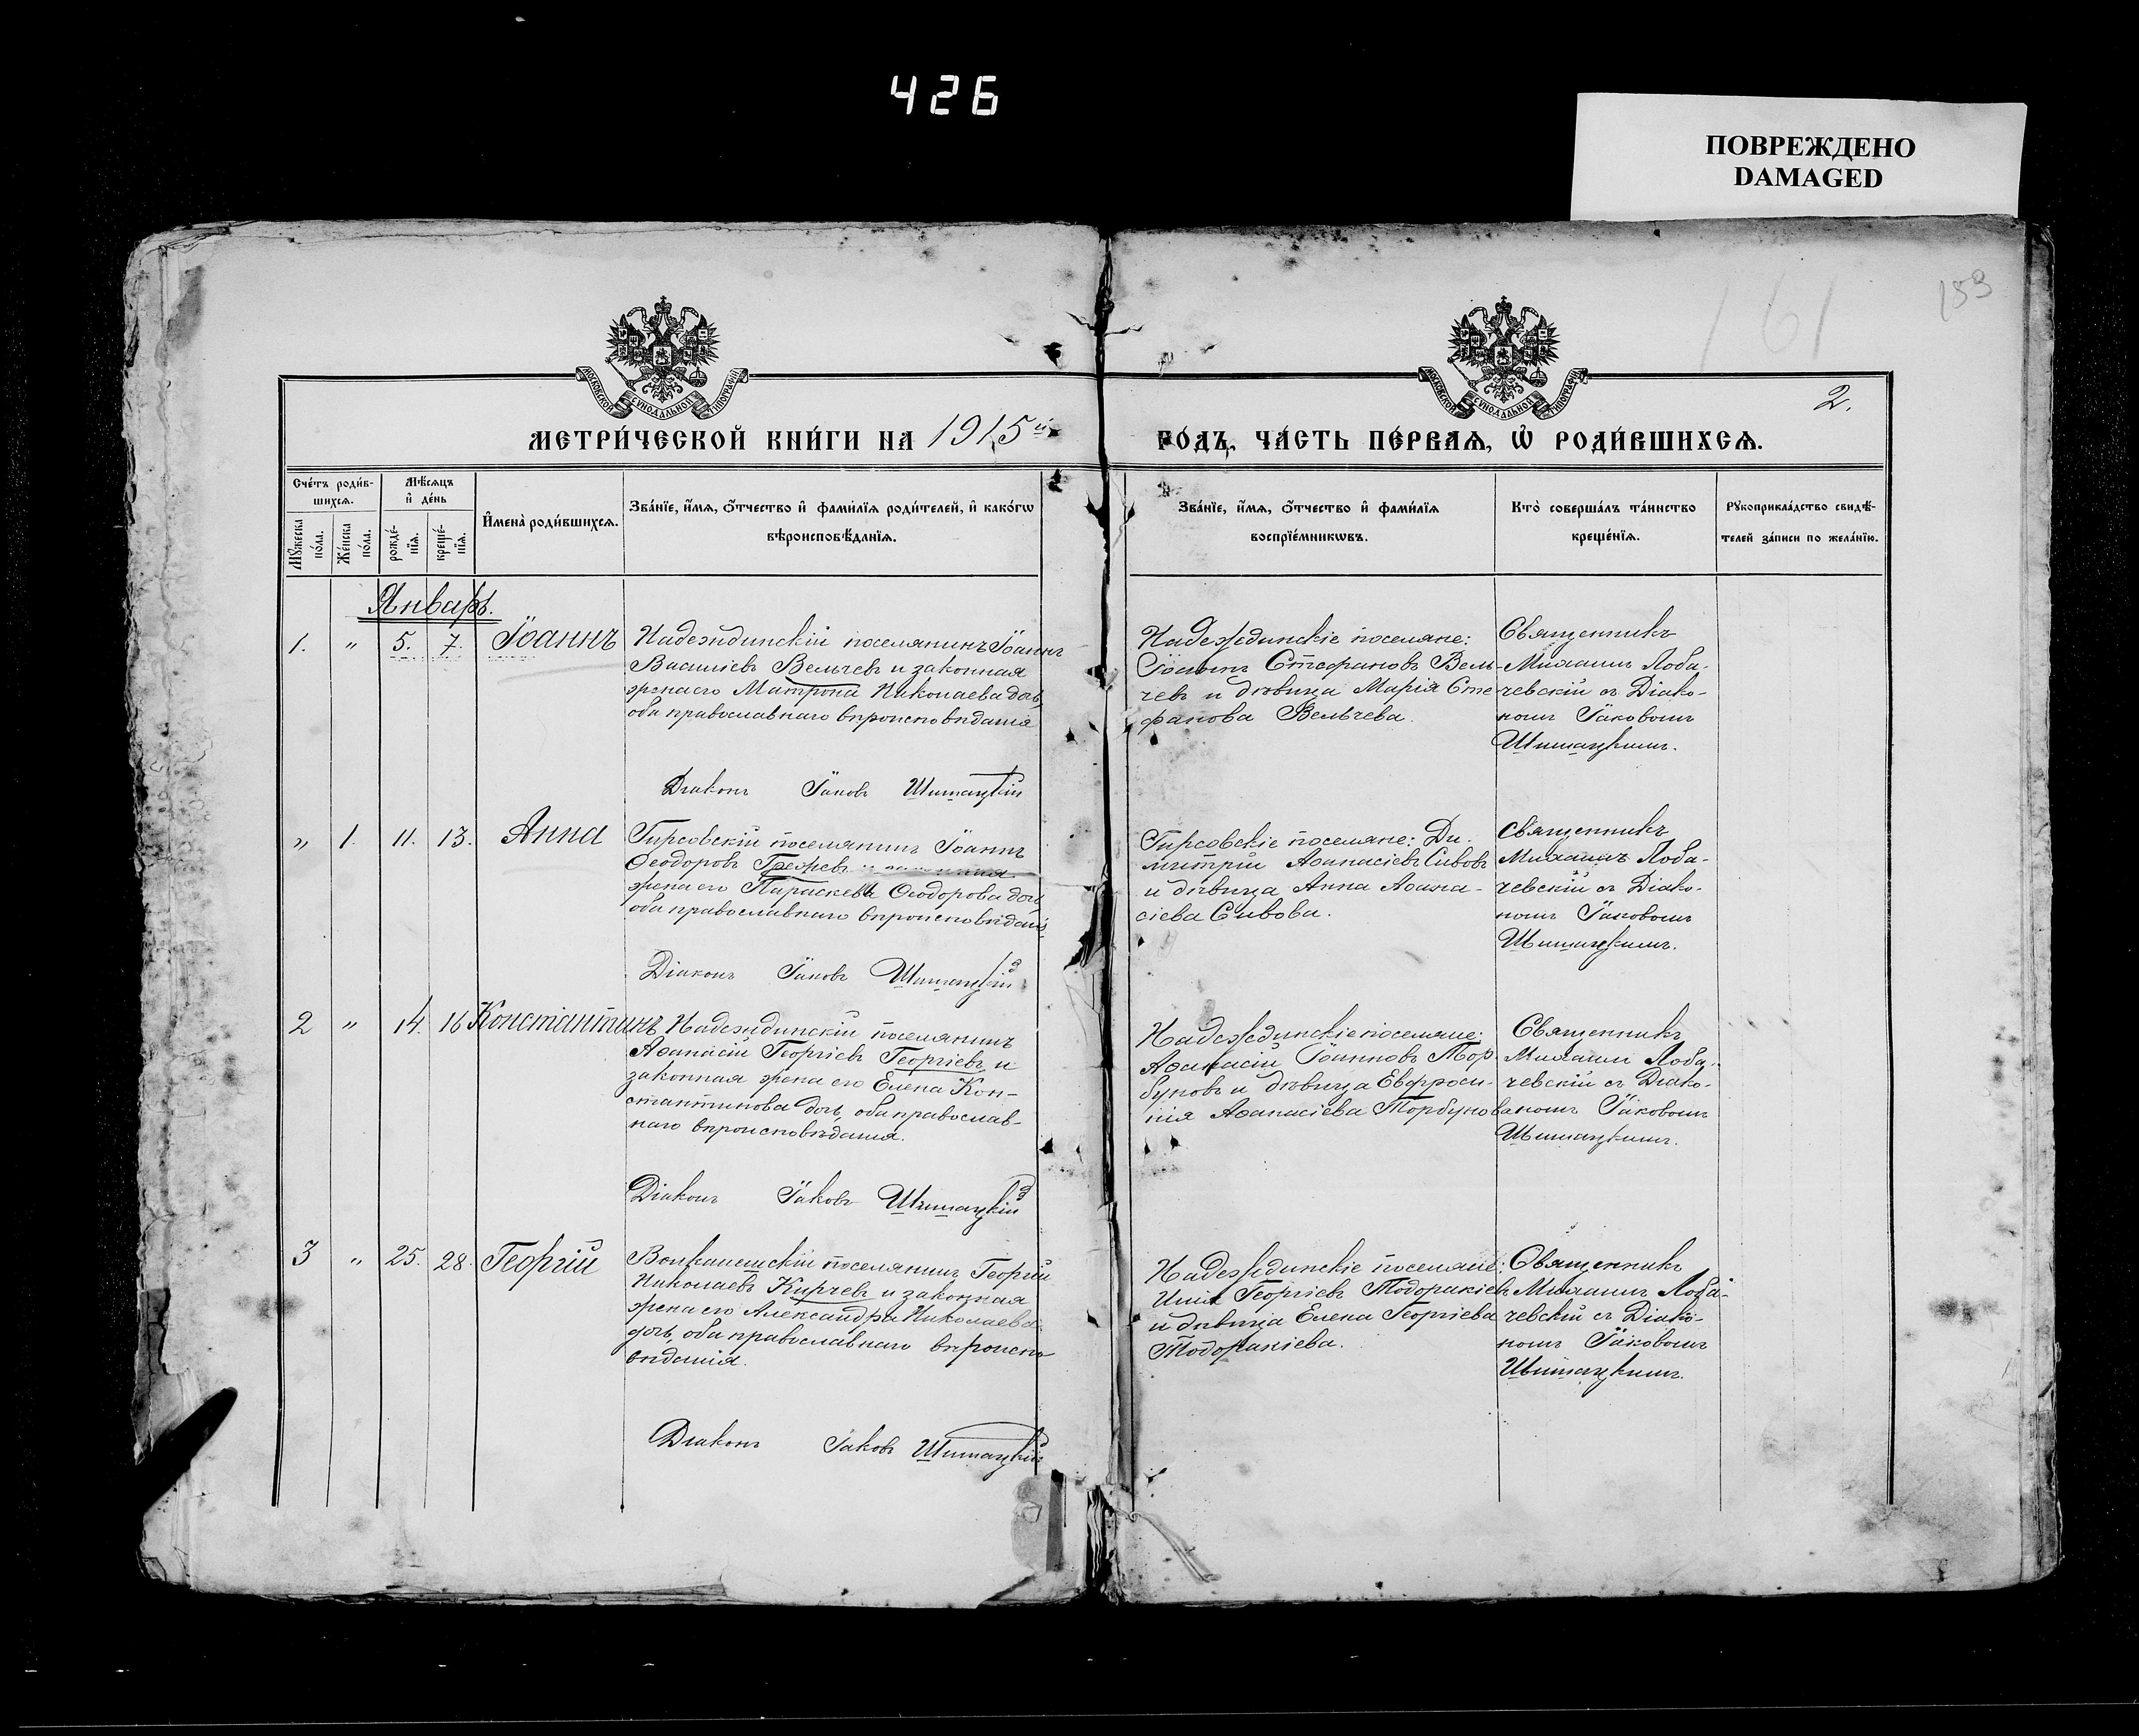 426
ПОВРЕЖДЕНО
DAMAGED
161
153
2.
МОСКОВСКОЙ СѴНОДАЛЬНОЙ ТИПОГРАФІИ
МОСКОВСКОЙ СѴНОДАЛЬНОЙ ТИПОГРАФІИ
МЕТРИ́ЧЕСКОЙ КНИ́ГИ НА 1915й
ГО́ДЪ, ЧА́СТЬ ПЕ́РВАѦ, Ѡ҆ РОДИ́ВШИХСѦ.
Сче́тъ роди́в-
шихсѧ.
Мѣ́сѧцъ
и҆ де́нь
Мꙋ́жеска по́ла.
Же́нска по́ла.
рожде́-нїѧ.
креще́-нїѧ.
И҆мена̀ роди́вшихсѧ.
Зва́нїе, и҆́мѧ, ѻ҆́тчество и҆ фами́лїѧ роди́телей, и҆ како́гѡ
вѣроисповѣ́данїѧ.
Зва́нїе, и҆́мѧ, ѻ҆́тчество и҆ фами́лїѧ
воспрїе́мникѡвъ.
Кто̀ соверша́лъ та́инство
креще́нїѧ.
Рꙋкоприкла́дство свидѣ́-
телей за́писи по жела́нїю.
Январь.
1. " 5. 7. Іоаннъ
Надеждинскій поселянинъ Іоаннъ
Василіевъ Вельчевъ и законная
жена его Матрона Николаева дочь,
оба православнаго вѣроисповѣданія
Діаконъ Іаковъ Шишацкій
Надеждинскіе поселяне:
Іоаннъ Стефановъ Вель-
чевъ и дѣвица Марія Сте-
фанова Вельчева.
Священникъ
Михаилъ Лоба-
чевскій съ Діако-
номъ Іаковомъ
Шишацкимъ.
" 1. 11. 13. Анна
Гирсовскій поселянинъ Іоаннъ
Ѳеодоровъ Грежевъ и законная
жена его Параскева Ѳеодорова дочь
оба православнаго вѣроисповѣданія
Діаконъ Іаковъ Шишацкій
Гирсовскіе поселяне: Ди-
митрій Аѳанасіевъ Сивовъ
и дѣвица Анна Аѳана-
сіева Сивова.
Священникъ
Михаилъ Лоба-
чевскій съ Діако-
номъ Іаковомъ
Шишацкимъ.
2 " 14. 16 Константинъ
Надеждинскій поселянинъ
Аѳанасій Георгіевъ Георгіевъ и
законная жена его Елена Кон-
стантинова дочь, оба православ-
наго вѣроисповѣданія.
Діаконъ Іаковъ Шишацкій
Надеждинскіе поселяне:
Аѳанасій Іоанновъ Тор-
буновъ и дѣвица Евфроси-
нія Аѳанасіева Торбунова
Священникъ
Михаилъ Лоба-
чевскій съ Діако-
номъ Іаковомъ
Шишацкимъ.
3 " 25. 28. Георгій
Волканешскій поселянинъ Георгій
Николаевъ Кирчевъ и законная
жена его Александра Николаева
дочь, оба православнаго вѣроиспо-
вѣданія.
Діаконъ Іаковъ Шишацкій
Надеждинскіе поселяне:
Илія Георгіевъ Тодоракіевъ
и дѣвица Елена Георгіева
Тодоракіева.
Священникъ
Михаилъ Лоба-
чевскій съ Діако-
номъ Іаковомъ
Шишацкимъ.